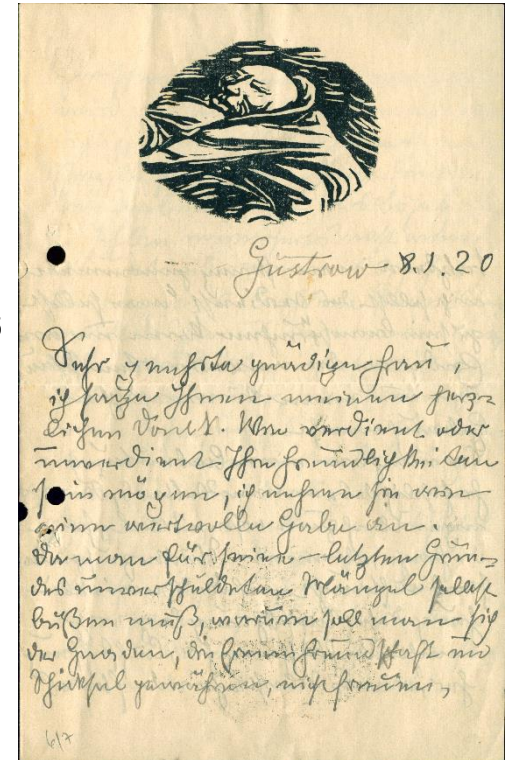 Güstrow 8.1.20
Sehr geehrte gnädige Frau,
ich sage Ihnen meinen herz-
lichen Dank. Wie verdient oder
unverdient Ihre Freundlichkeiten
sein mögen, ich nehme sie wie
eine wertvolle Gabe an.
Da man für seine – letzten Grun-
des unverschuldeten Mängel selbst
büßen muß, warum soll man sich
der Gnaden, die Freundschaft und
Schicksal gewähren, nicht freuen,
6/7